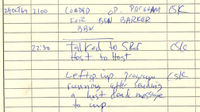 29 Oct 69 2100 LOADED OP. PROGRAM CSK
FOR BEN BARKER
BBN
22:30 Talked to SRI CSK
Host to Host
Left op imp program CSK
running after sending
a host dead message
to imp.